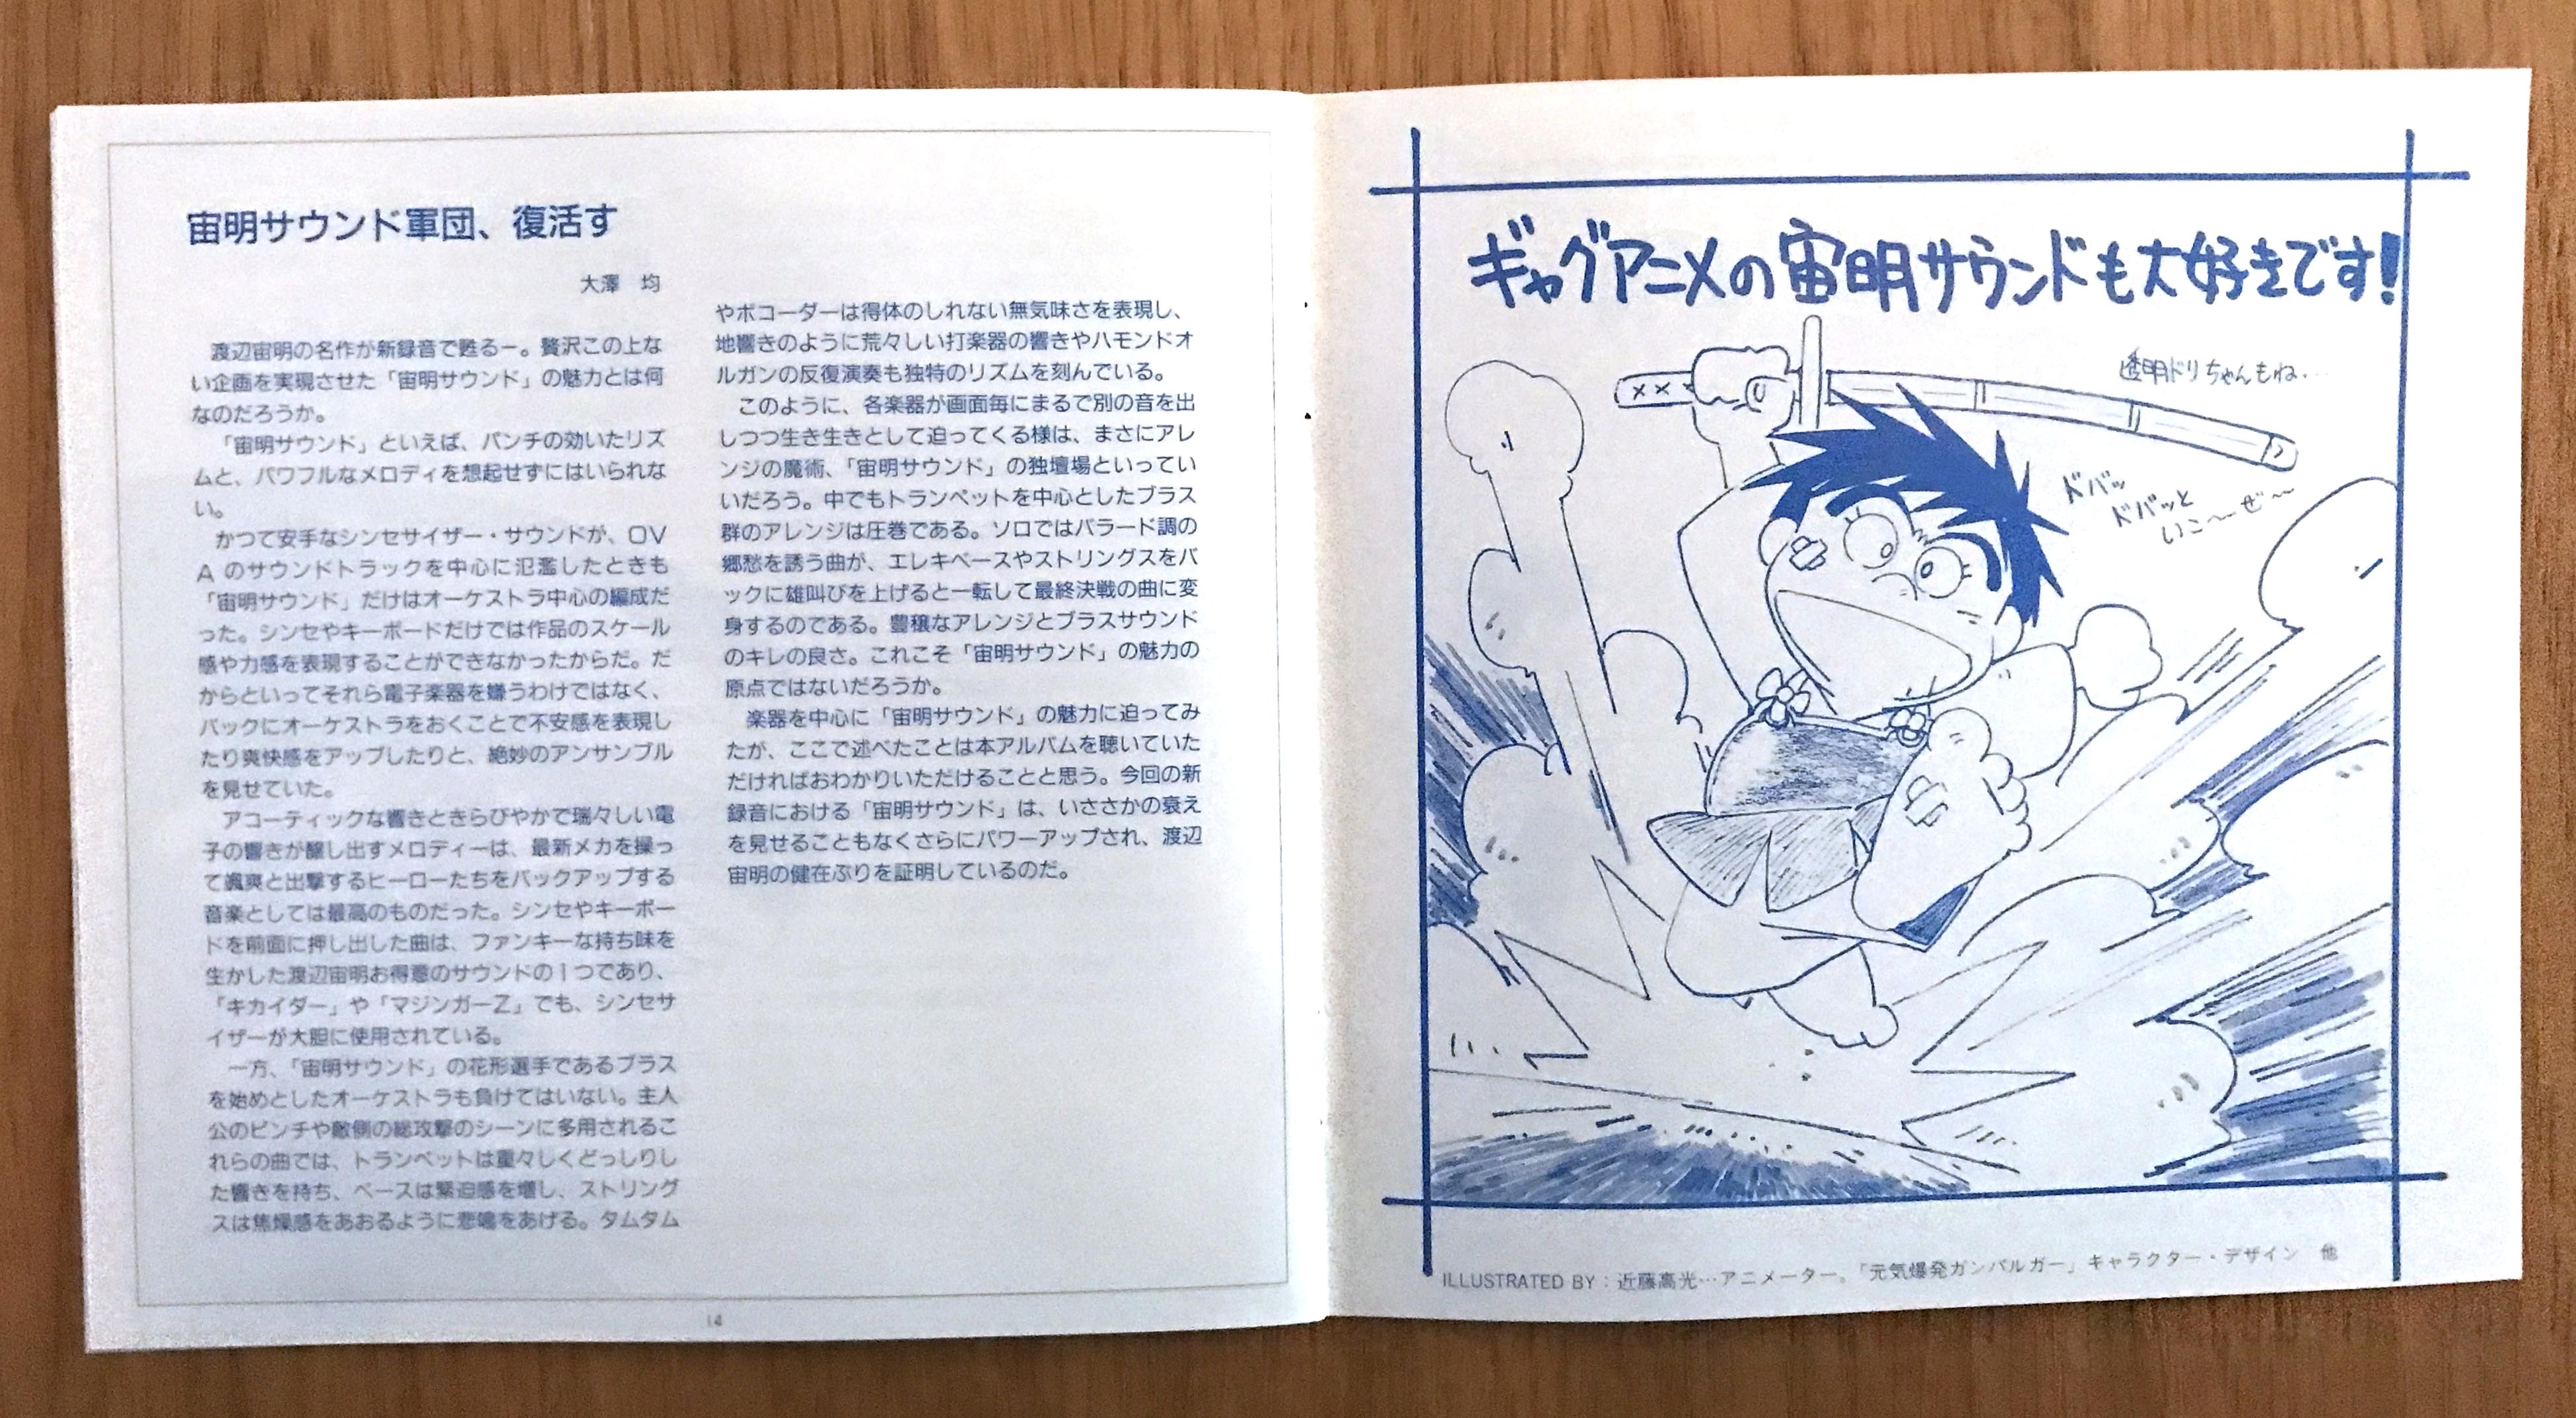 宙明サウンド軍団、復活す
大澤　均
　渡辺宙明の名作が新録音で甦るー。贅沢この上な
い企画を実現させた「宙明サウンド」の魅力とは何
なのだろうか。
　「宙明サウンド」といえば、パンチの効いたリズ
ムと、パワフルなメロディを想起せずにはいられな
い。
　かつて安手なシンセサイザー・サウンドが、OV
Aのサウンドトラックを中心に氾濫したときも
「宙明サウンド」だけはオーケストラ中心の編成だ
った。シンセやキーボードだけでは作品のスケール
感や力感を表現することができなかったからだ。だ
からといってそれら電子楽器を嫌うわけではなく、
バックにオーケストラをおくことで不安感を表現し
たり爽快感をアップしたりと、絶妙のアンサンブル
を見せていた。
　アコーティックな響きときらびやかで瑞々しい電
子の響きが醸し出すメロディーは、最新メカを操っ
て颯爽と出撃するヒーローたちをバックアップする
音楽としては最高のものだった。シンセやキーボー
ドを前面に押し出した曲は、ファンキーな持ち味を
生かした渡辺宙明お得意のサウンドの1つであり、
「キカイダー」や「マジンガーZ」でも、シンセサ
イザーが大胆に使用されている。
　一方、「宙明サウンド」の花形選手であるブラス
を始めとしたオーケストラも負けてはいない。主人
公のピンチや敵側の総攻撃のシーンに多用されるこ
れらの曲では、トランペットは重々しくどっしりし
た響きを持ち、ベースは緊迫感を増し、ストリング
スは焦燥感をあおるように悲鳴をあげる。タムタム
やボコーダーは得体のしれない無気味さを表現し、
地響きのように荒々しい打楽器の響きやハモンドオ
ルガンの反復演奏も独特のリズムを刻んでいる。
　このように、各楽器が画面毎にまるで別の音を出
しつつ生き生きとして迫ってくる様は、まさにアレ
ンジの魔術、「宙明サウンド」の独壇場といってい
いだろう。中でもトランペットを中心としたブラス
群のアレンジは圧巻である。ソロではバラード調の
郷愁を誘う曲が、エレキベースやストリングスをバ
ックに雄叫びを上げると一転して最終決戦の曲に変
身するのである。豊穣なアレンジとブラスサウンド
のキレの良さ。これこそ「宙明サウンド」の魅力の
原点ではないだろうか。
　楽器を中心に「宙明サウンド」の魅力に迫ってみ
たが、ここで述べたことは本アルバムを聴いていた
だければおわかりいただけることと思う。今回の新
録音における「宙明サウンド」は、いささかの衰え
を見せることもなくさらにパワーアップされ、渡辺
宙明の健在ぶりを証明しているのだ。
14
ギャグアニメの宙明サウンドも大好きです!
透明ドリちゃんもね...
ドバッ
ドバッと
いこ〜ぜ〜
ILLUSTRATED BY：近藤高光…アニメーター。「元気爆発ガンバルガー」キャラクター・デザイン　他